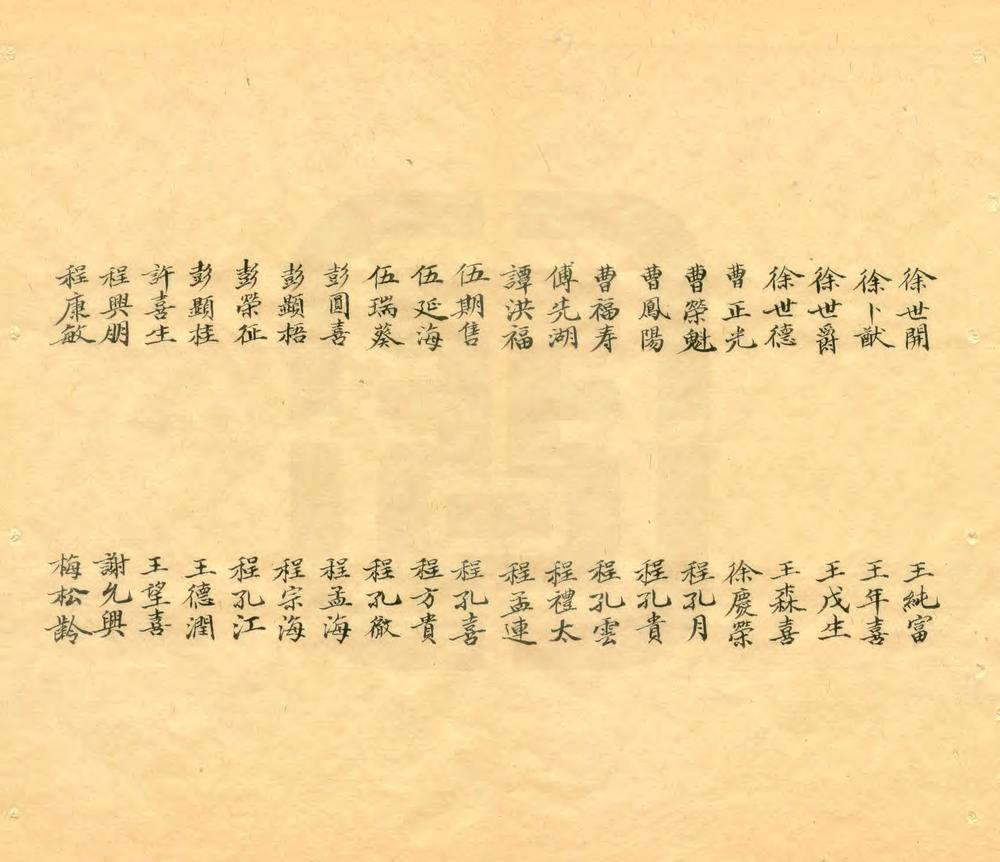 徐世開
徐卜猷
徐世爵
徐世德
曹正光
曹榮魁
曹鳳陽
曹福寿
傅先湖
譚洪福
伍期售
伍延海
伍瑞葵
彭圓喜
彭顯梧
彭榮征
彭顯桂
許喜生
程興朋
程康敏
王純富
王年喜
王戊生
王森喜
徐慶榮
程孔月
程孔貴
程孔雲
程禮太
程孟連
程孔喜
程方貴
程孔徹
程孟海
程宗海
程孔江
王德潤
王望喜
謝允興
梅松齡